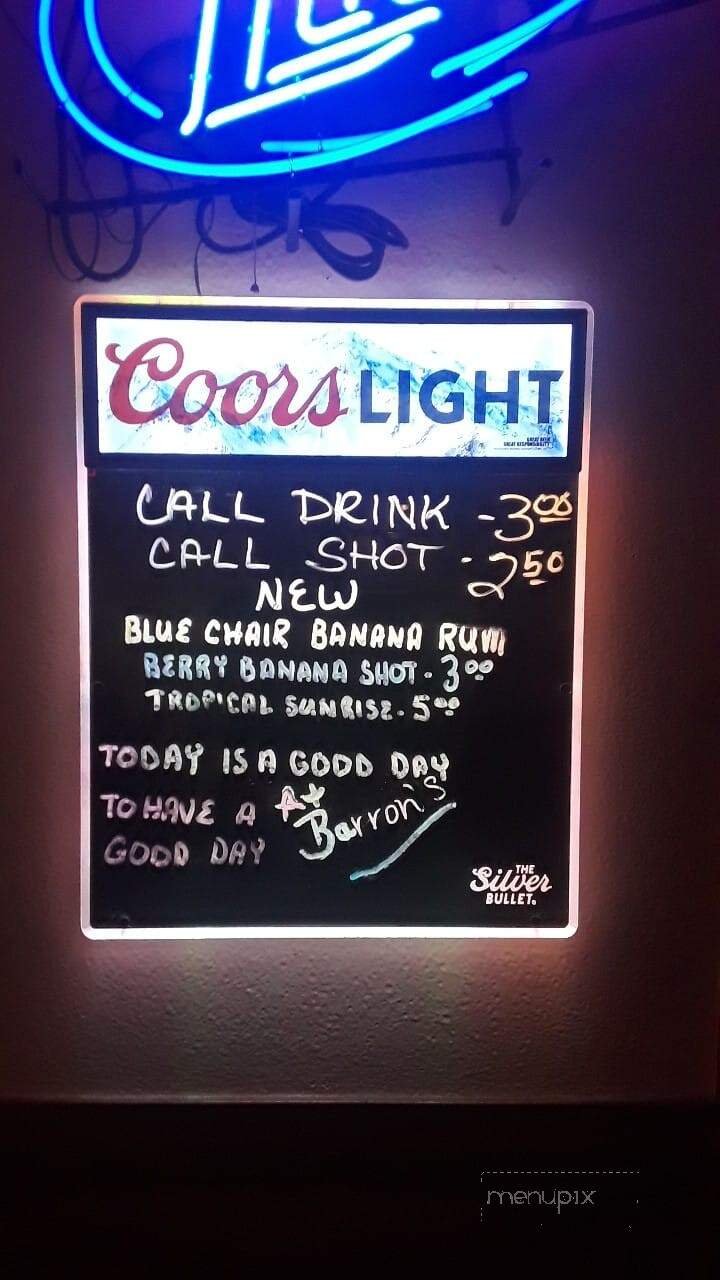 Lite
Coors LIGHT
GREAT BEER
GREAT RESPONSIBILITY
CALL DRINK - 3.00
CALL SHOT - 2.50
NEW
BLUE CHAIR BANANA RUM
BERRY BANANA SHOT - 3.00
TROPICAL SUNRISE - 5.00
TODAY IS A GOOD DAY
TO HAVE A
GOOD DAY
At
Barron's
THE
Silver
BULLET.
menupix